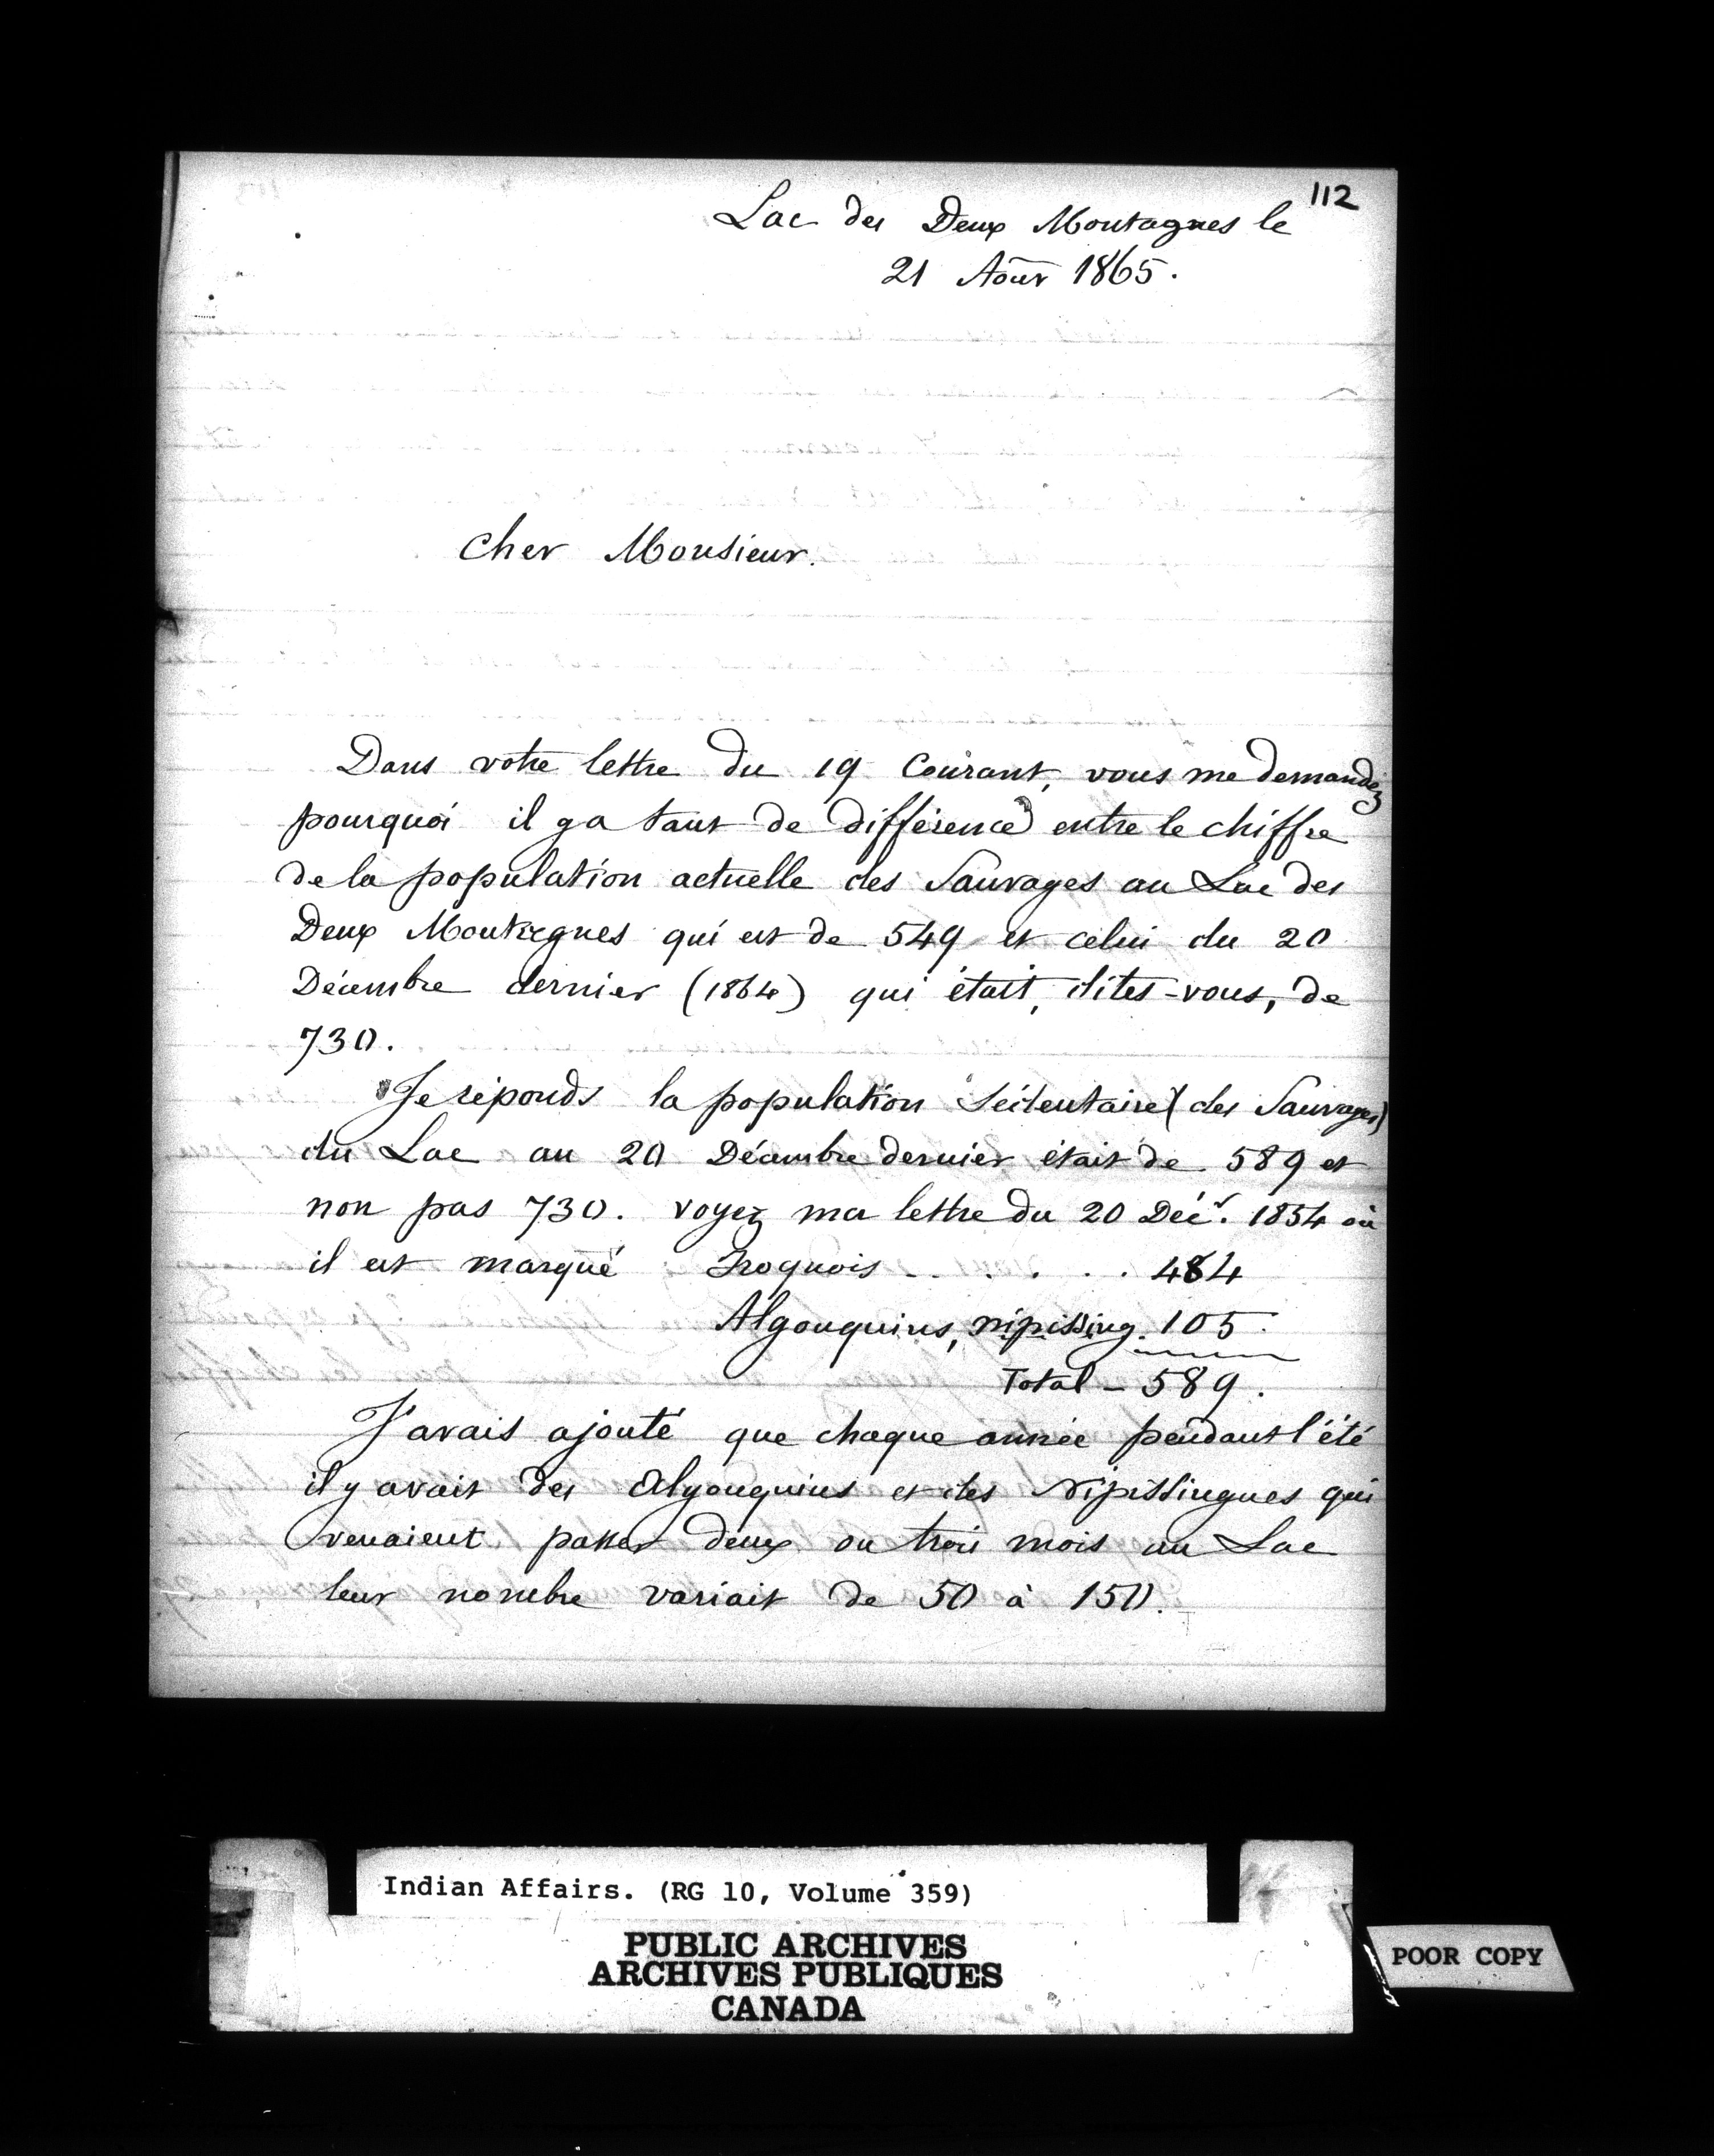 112
Lac des Deux Montagnes le
21 Août 1865.
Cher Monsieur.
Dans votre lettre du 19 Courant, vous me demandez
pourquoi il y a tant de différence entre le chiffre
de la population actuelle des Sauvages au Lac des
Deux Montagnes qui est de 549 et celui du 20
Décembre dernier (1864) qui était, dites-vous, de
730.
Je réponds la population Sédentaire (des Sauvages)
du Lac au 20 Décembre dernier était de 589 et
non pas 730. voyez ma lettre du 20 Déc.r 1854 où
il est marqué Iroquois . . . . . 484
Algonquins, nipissing. 105.
Total - 589.
J'avais ajouté que chaque année pendant l'été
il y avait des Algonquins et des Nipissingues qui
venaient passer deux ou trois mois au Lac
leur nombre variait de 50 à 150.
Indian Affairs. (RG 10, Volume 359)
PUBLIC ARCHIVES
ARCHIVES PUBLIQUES
CANADA
POOR COPY